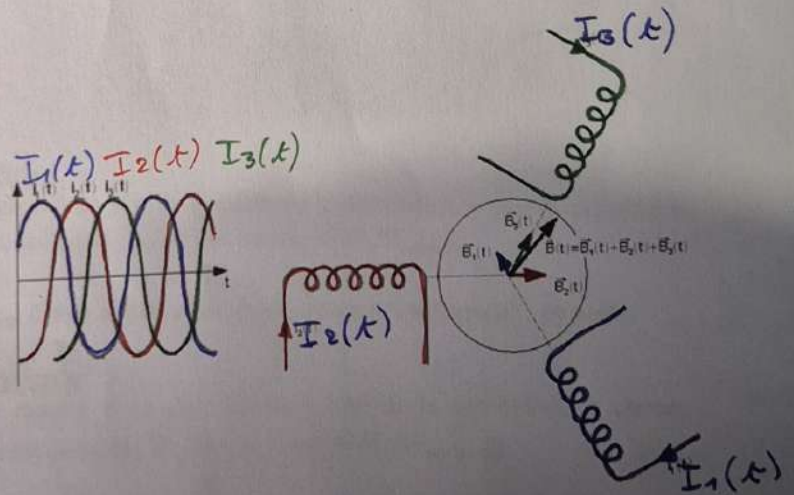 I₃(t)
I₁(t) I₂(t) I₃(t)
I₁(t) I₂(t) I₃(t)
t
B⃗₃(t)
B⃗₁(t)
B⃗(t)=B⃗₁(t)+B⃗₂(t)+B⃗₃(t)
B⃗₂(t)
I₂(t)
I₁(t)